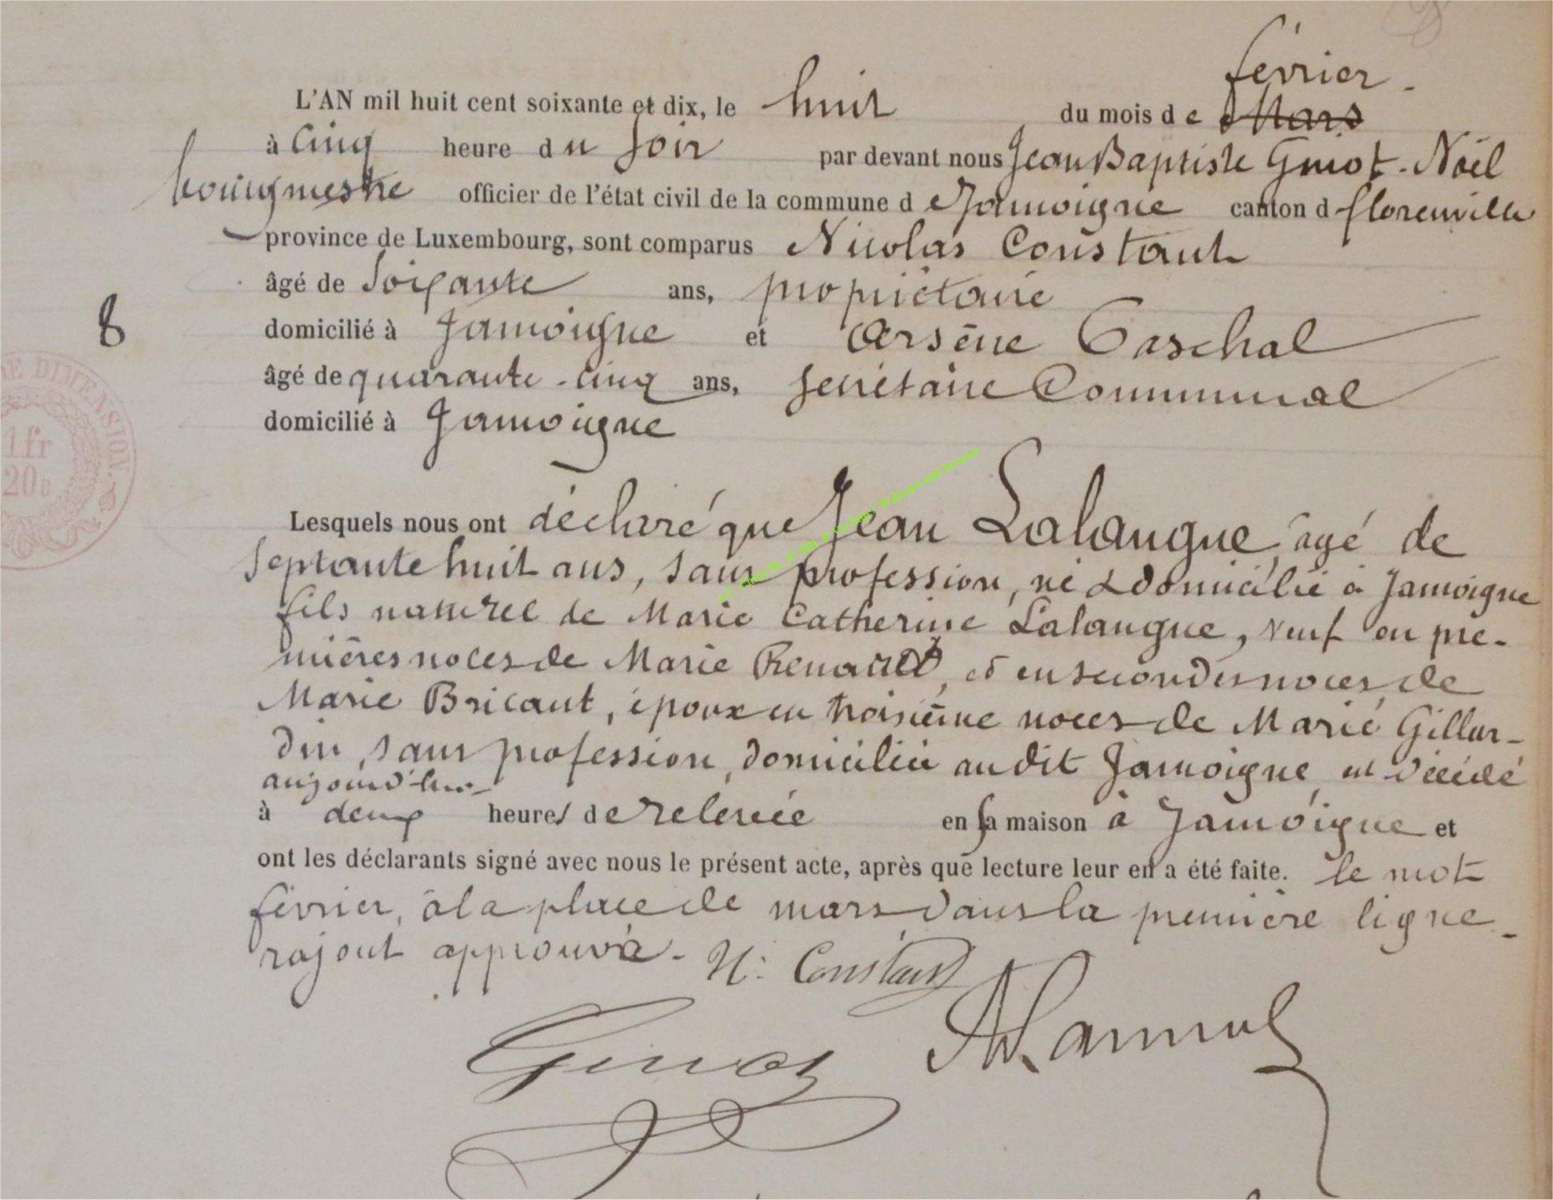 février.
L'AN mil huit cent soixante et dix, le huit du mois de Mars
à Cinq heure du soir par devant nous Jean Baptiste Guiot-Noël
bourgmestre officier de l'état civil de la commune de Jamoigne canton d florenville
province de Luxembourg, sont comparus Nicolas Constant
âgé de soixante ans, propriétaire
domicilié à Jamoigne et Arsène Paschal
8
âgé de quarante-cinq ans, secrétaire Communal
domicilié à Jamoigne
E DIMENSION
1fr
20c
Lesquels nous ont déclaré que Jean Lalangue, âgé de
septante huit ans, sans profession, né & domicilié à Jamoigne
fils naturel de Marie Catherine Lalangue, veuf en pre-
mières noces de Marie Renauld, et en secondes noces de
Marie Bricaut, époux en troisième noces de Marie Gillar-
din, sans profession, domiciliée audit Jamoigne, est décédé
aujourd'hui
à deux heures de relevée en sa maison à Jamoigne et
ont les déclarants signé avec nous le présent acte, après que lecture leur en a été faite. le mot
février, à la place de mars dans la première ligne
rajout approuvé. N. Constant
Guiot